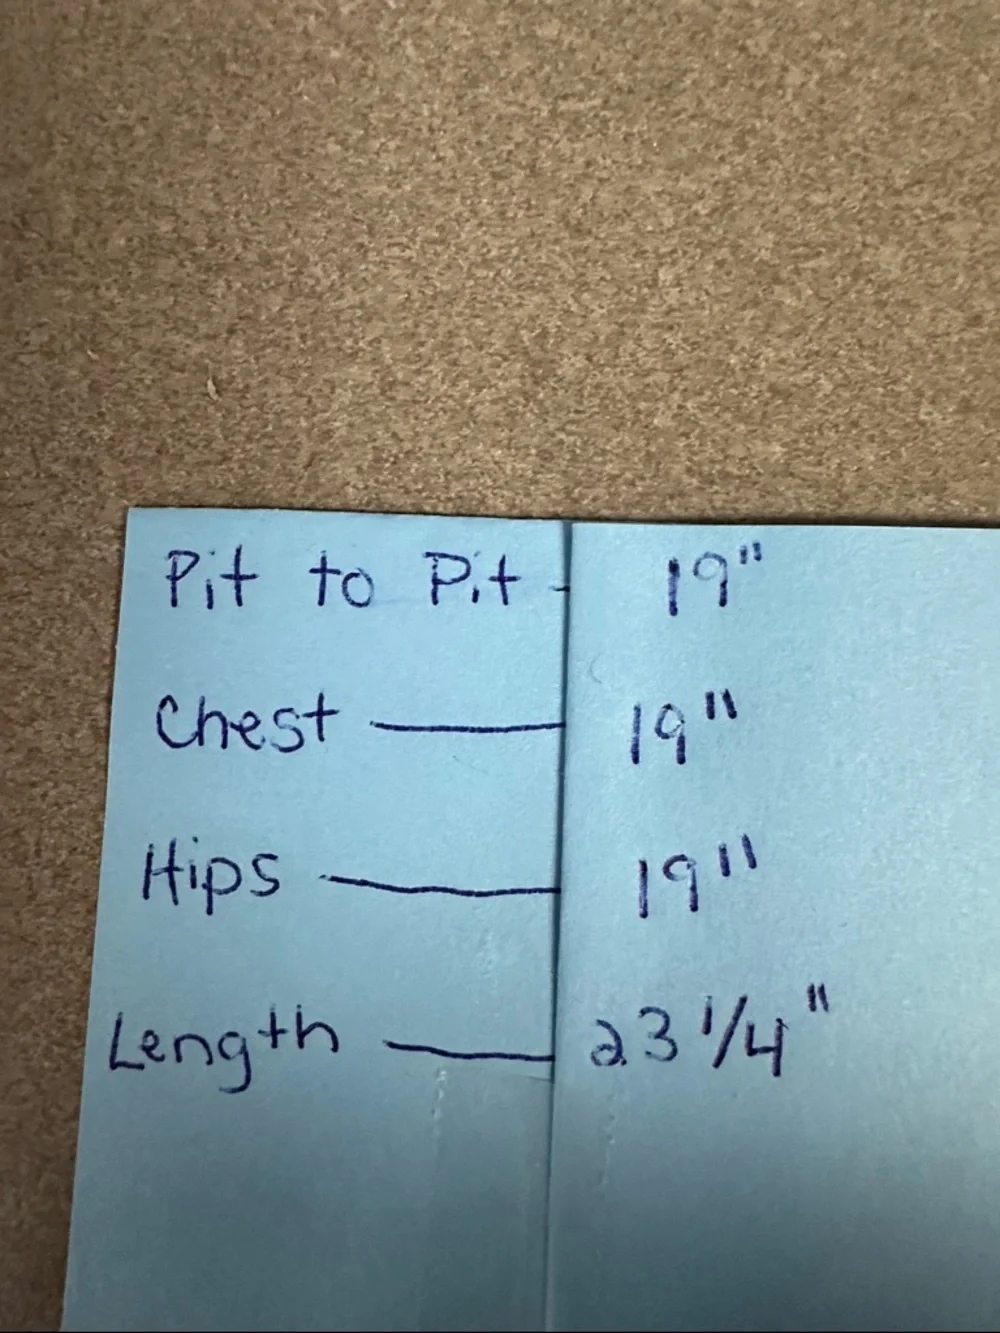 Pit to Pit - 19"
Chest — 19"
Hips — 19"
Length — 23 1/4"